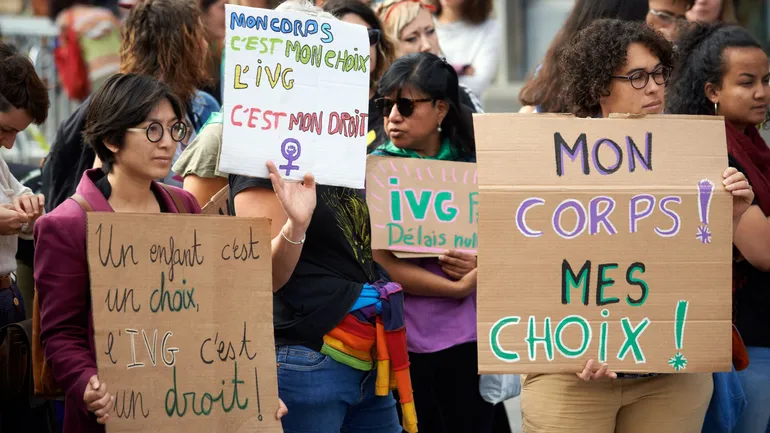 MON CORPS
C'EST MON CHOIX
L'IVG
C'EST MON DROIT
Un enfant c'est
un choix,
l'IVG c'est
un droit !
IVG
Délais
MON
CORPS !
MES
CHOIX !